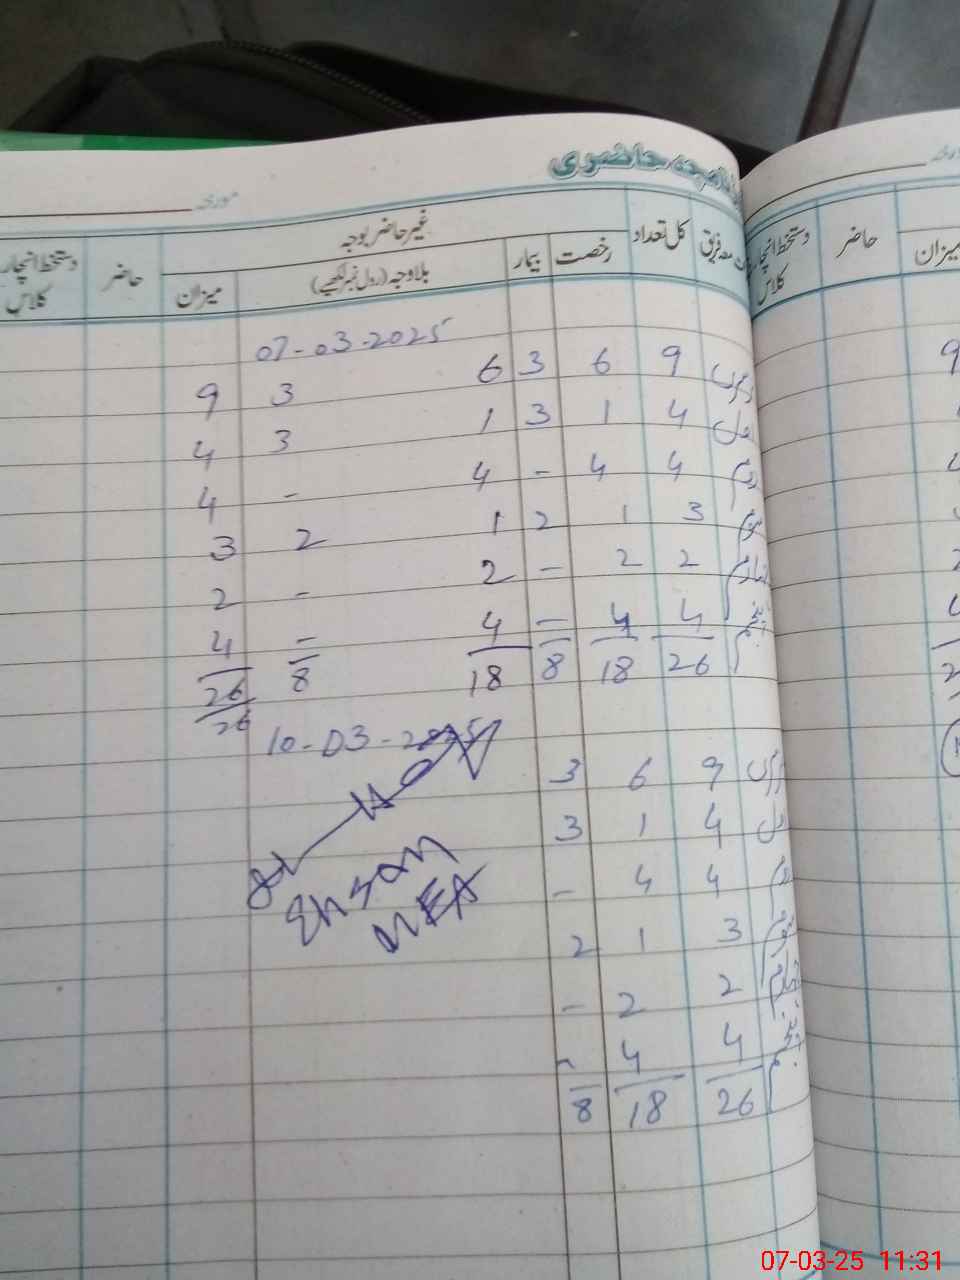 حاضری
مورخہ
کل تعداد رخصت بیمار غیر حاضر بوجہ
بلاوجہ (رول نمبر لکھیے) میزان حاضر دستخط انچارج کلاس
دستخط انچارج کلاس حاضر میزان
07-03-2025
9 6 3 6 3 9
4 1 3 1 3 4
دوم 4 4 - 4 - 4
سوم 3 1 2 1 2 3
چہارم 2 2 - 2 - 2
پنجم 4 4 - 4 - 4
26 18 8 18 8 26
26
10-03-2025
9 6 3
4 1 3
دوم 4 4 -
سوم 3 1 2
چہارم 2 2 -
پنجم 4 4 -
26 18 8
Ehsan
MEA
07-03-25 11:31